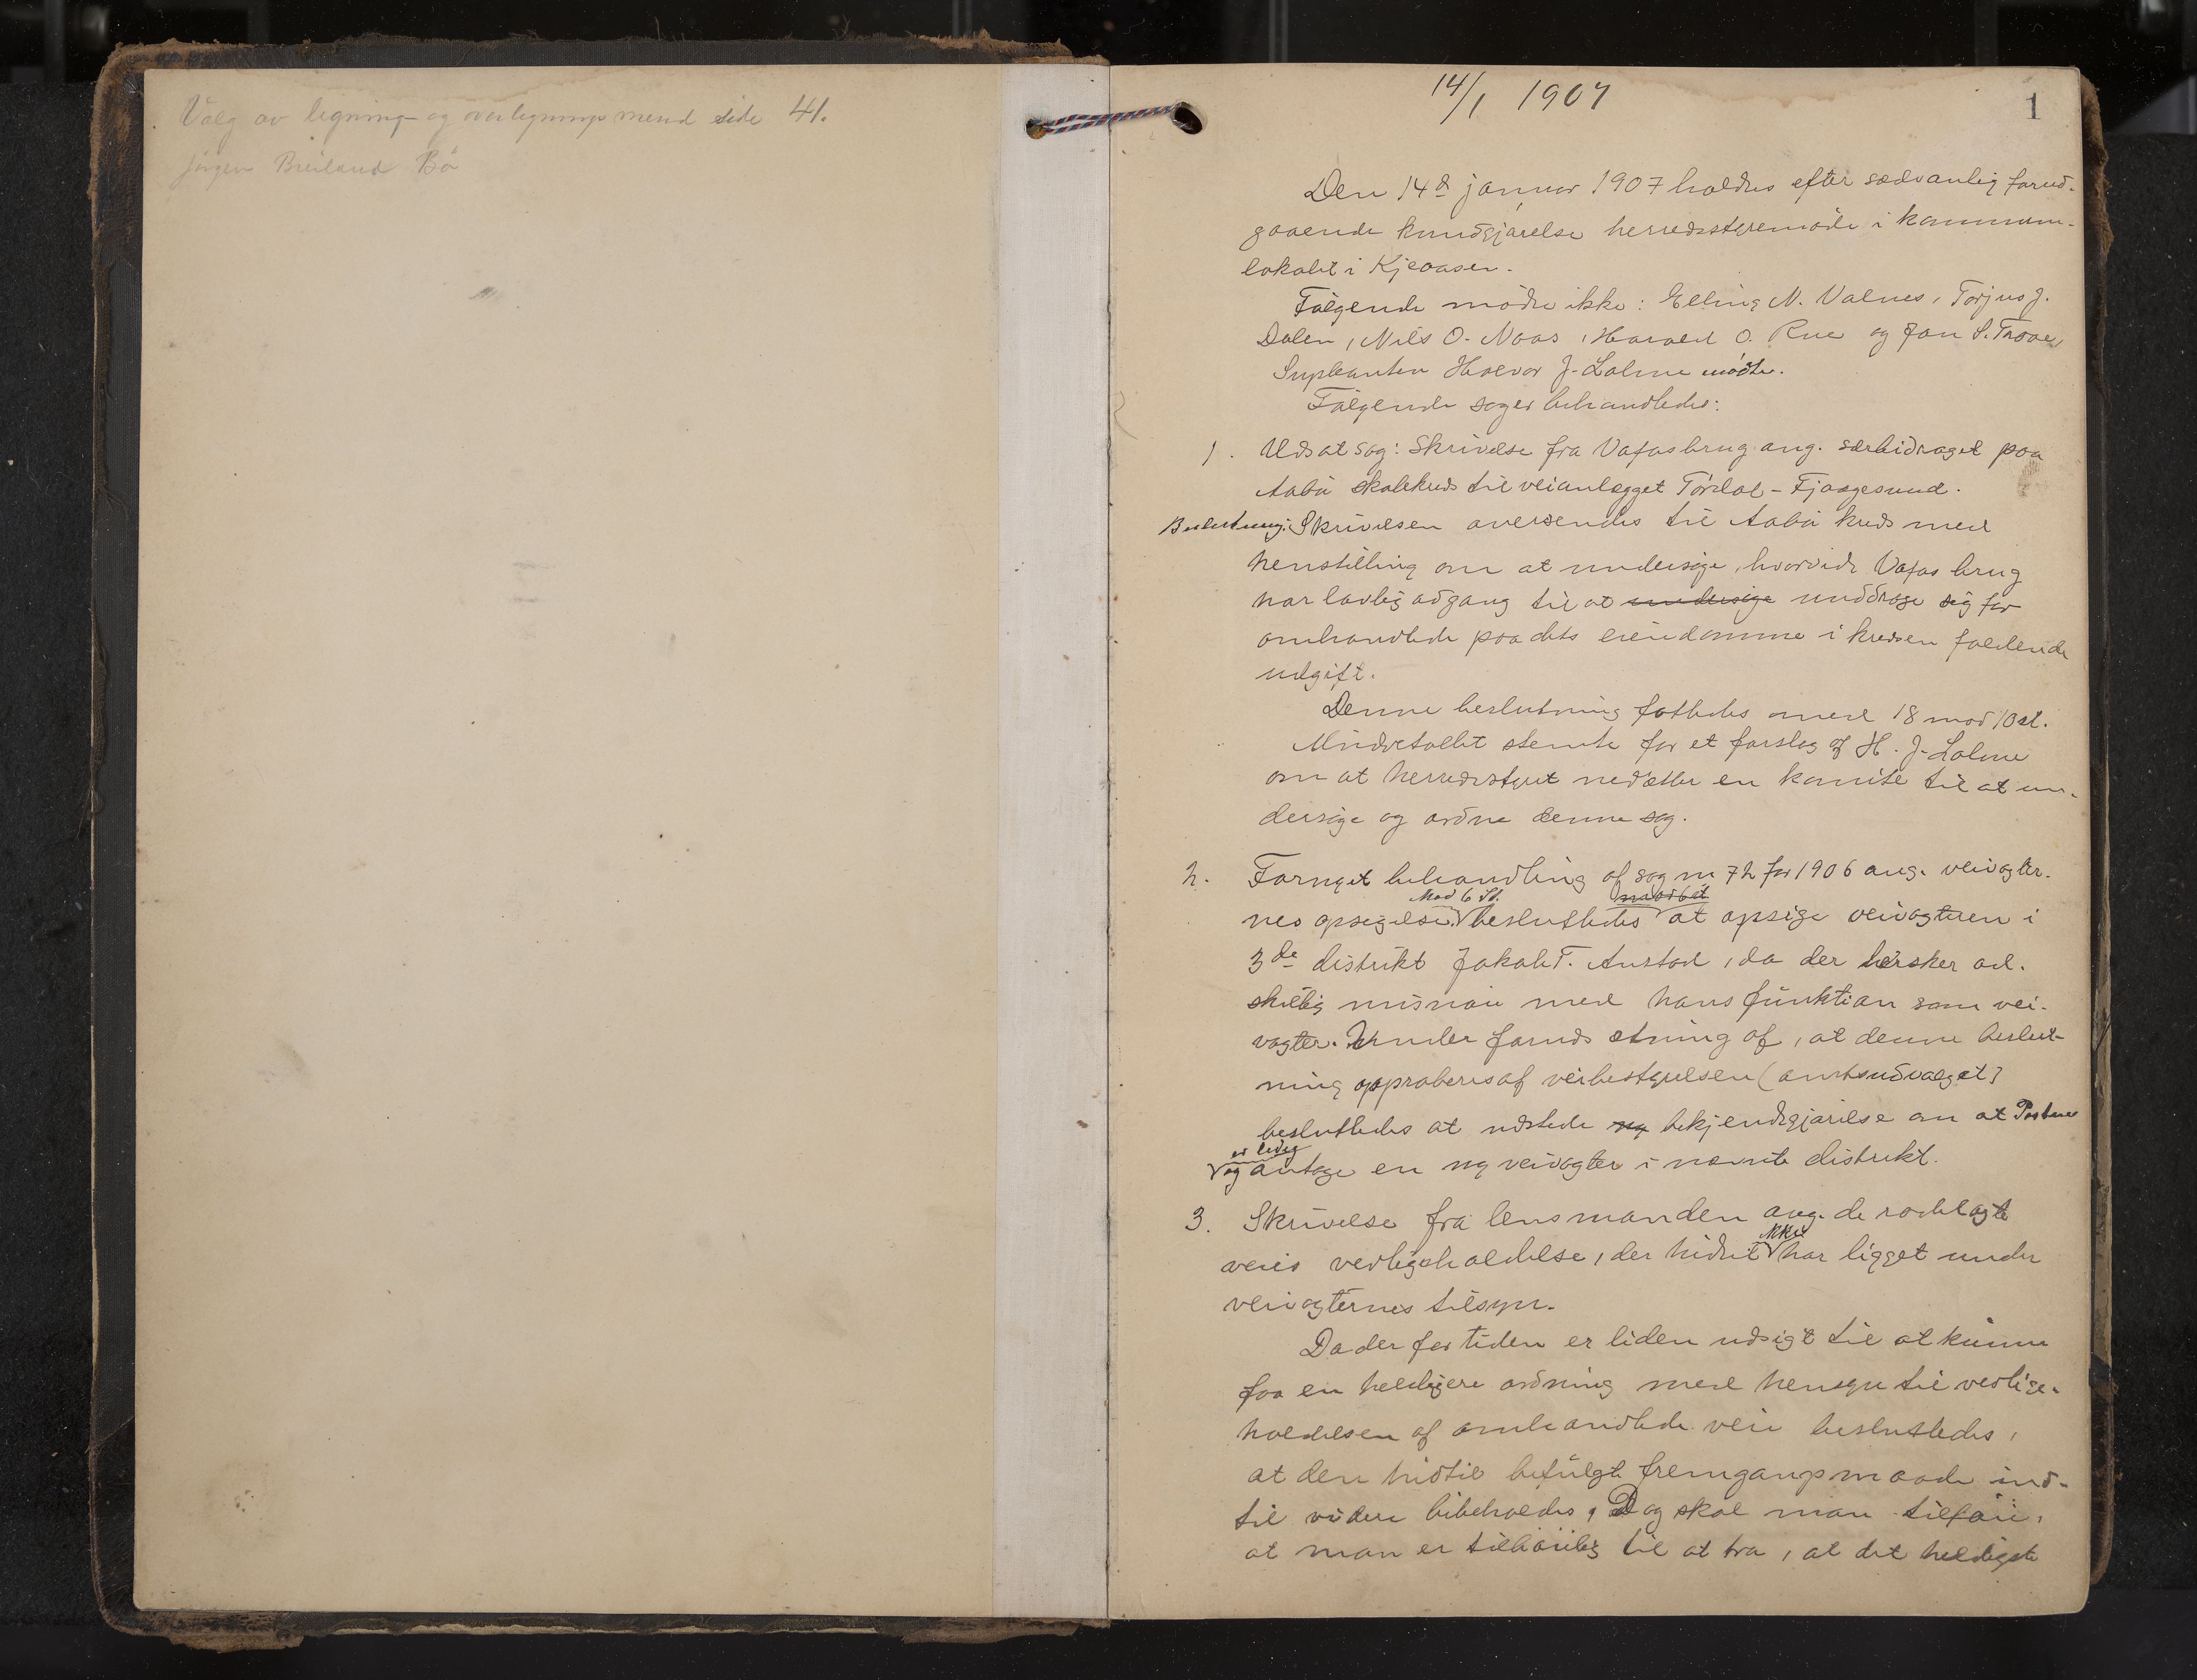 Valg av lignings- og overligningsmend side 41.
Jörgen Breiland Bö
14/1 1907
1
Den 14de januar 1907 holdtes efter sædvanlig forud-
gaaende kundgjørelse herredsstyremøde i kommune-
lokalet i Kjeaasen.
Følgende mødte ikke: Elling N. Valnes, Torjus J.
Dalen, Nils O. Naas, Harald O. Rue og Jon S. Troae,
Supleanten Halvor J. Lolme mødte.
Følgende sager behandledes:
1. Udsat sag: Skrivelse fra Vafos brug ang. særbidraget paa
Aabø skolekreds til veianlægget Tørdal - Fjaagesund.
Beslutning: Skrivelsen oversendes til Aabø kreds med
henstilling om at undersøge, hvorvidt Vafos brug
har lovlig adgang til at undersøge unddrage sig for
omhandlede paa dets eiendomme i kredsen faldende
udgift.
Denne beslutning fattedes med 18 mod 10 st.
Mindretallet stemte for et forslag af H. J. Lolme
om at herredsstyret nedsætter en komite til at un-
dersøge og ordne denne sag.
2. Fornyet behandling af sag nr 72 for 1906 ang. veivogter-
Mod 6 St. mod 6 st
nes opsigelse. besluttedes at opsige veivogteren i
3de distrikt Jakob T. Austad, da der hersker ad-
skillig misnøie med hans funktion som vei-
vogter. Under forudsætning af, at denne beslut-
ning approberes af veibestyrelsen (amtsudvalget)
besluttedes at udstede ny bekjendtgjørelse om at Posten
er ledig
og antage en ny veivogter i nævnte distrikt.
3. Skrivelse fra lensmanden ang. de rodelagte
ikke
veies vedligeholdelse, der hidtil har ligget under
veivogternes tilsyn.
Da der for tiden er liden udsigt til at kunne
faa en heldigere ordning med hensyn til vedlige-
holdelsen af omhandlede veie besluttedes,
at den hidtil befulgte fremgangsmaade ind-
til videre bibeholdes, Dog skal man tilføie,
at man er tilbøielig til at tro, at det heldigste